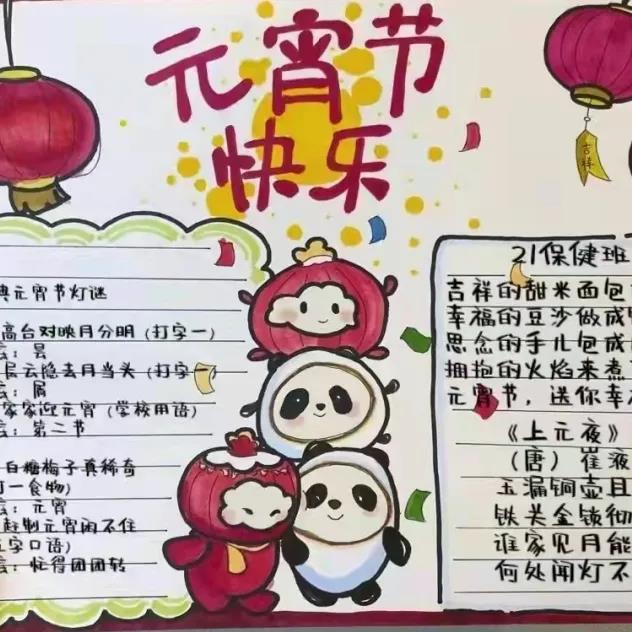 元宵节
快乐
吉祥
典元宵节灯谜
高台对映月分明(打字一)
:昙
层云隐去月当头(打字一)
:屑
家家迎元宵(学校用语)
:第二节
白糖梅子真稀奇
打一食物)
:元宵
赶制元宵闲不住
字口语)
:忙得团团转
21保健班
吉祥的甜米面包
幸福的豆沙做成
思念的手儿包成
拥抱的火焰来煮
元宵节,送你幸
《上元夜》
(唐)崔液
玉漏铜壶且
铁关金锁彻
谁家见月能
何处闻灯不